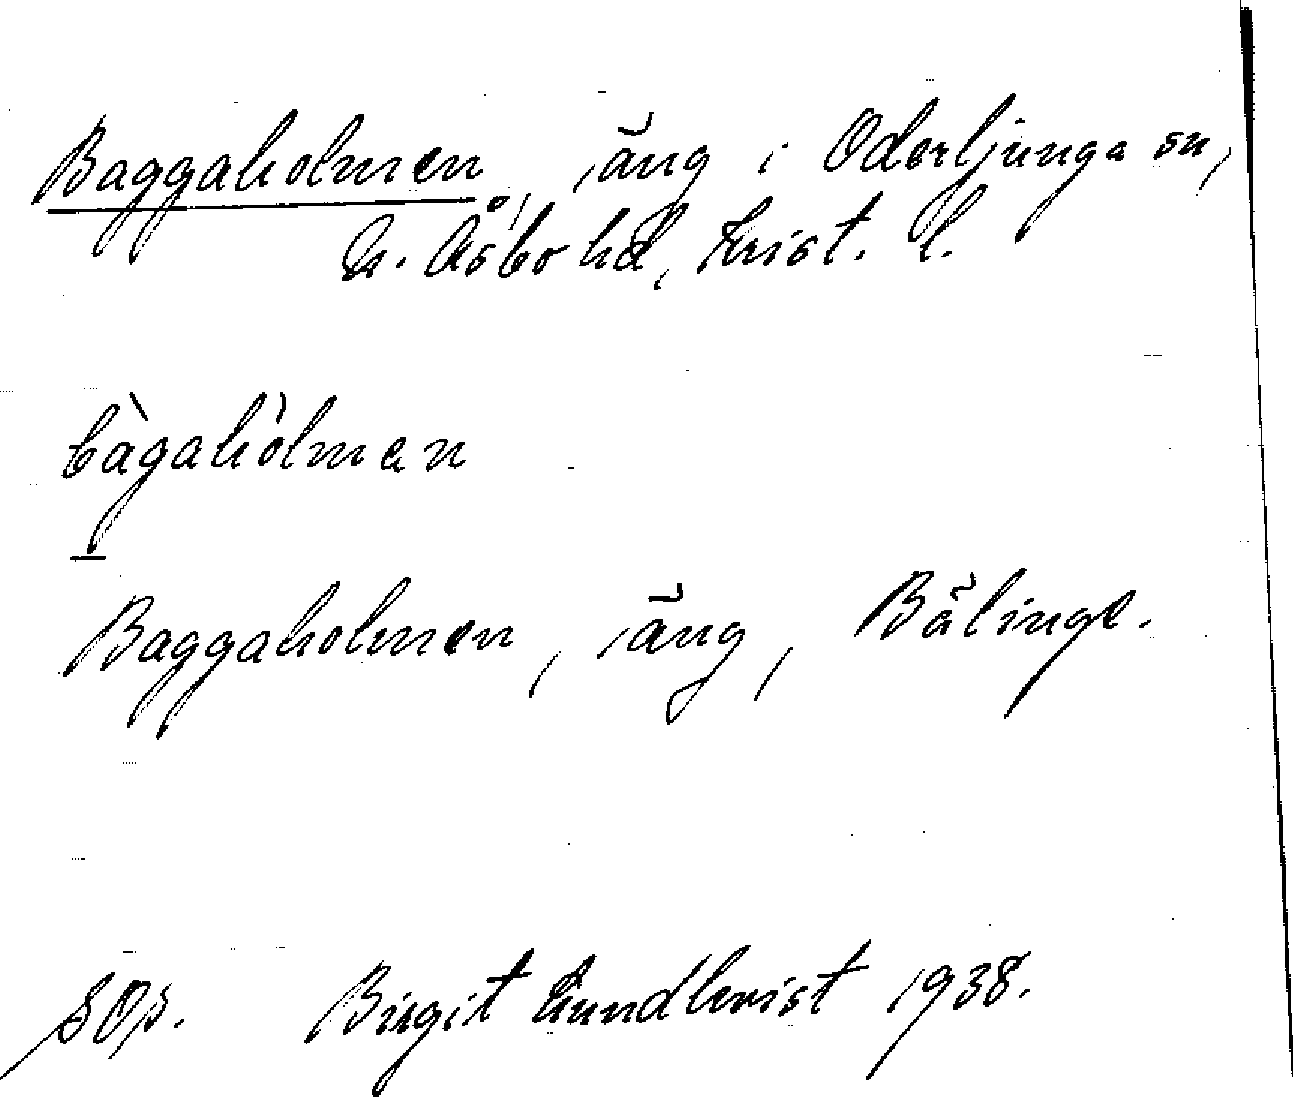 Baggaholmen, äng i Oderljunga sn,
N. Åsbo hd, Krist. l.
bàgahòlman
Baggaholmen, äng, Bälinge.
SOp. Birgit Lundkvist 1938.